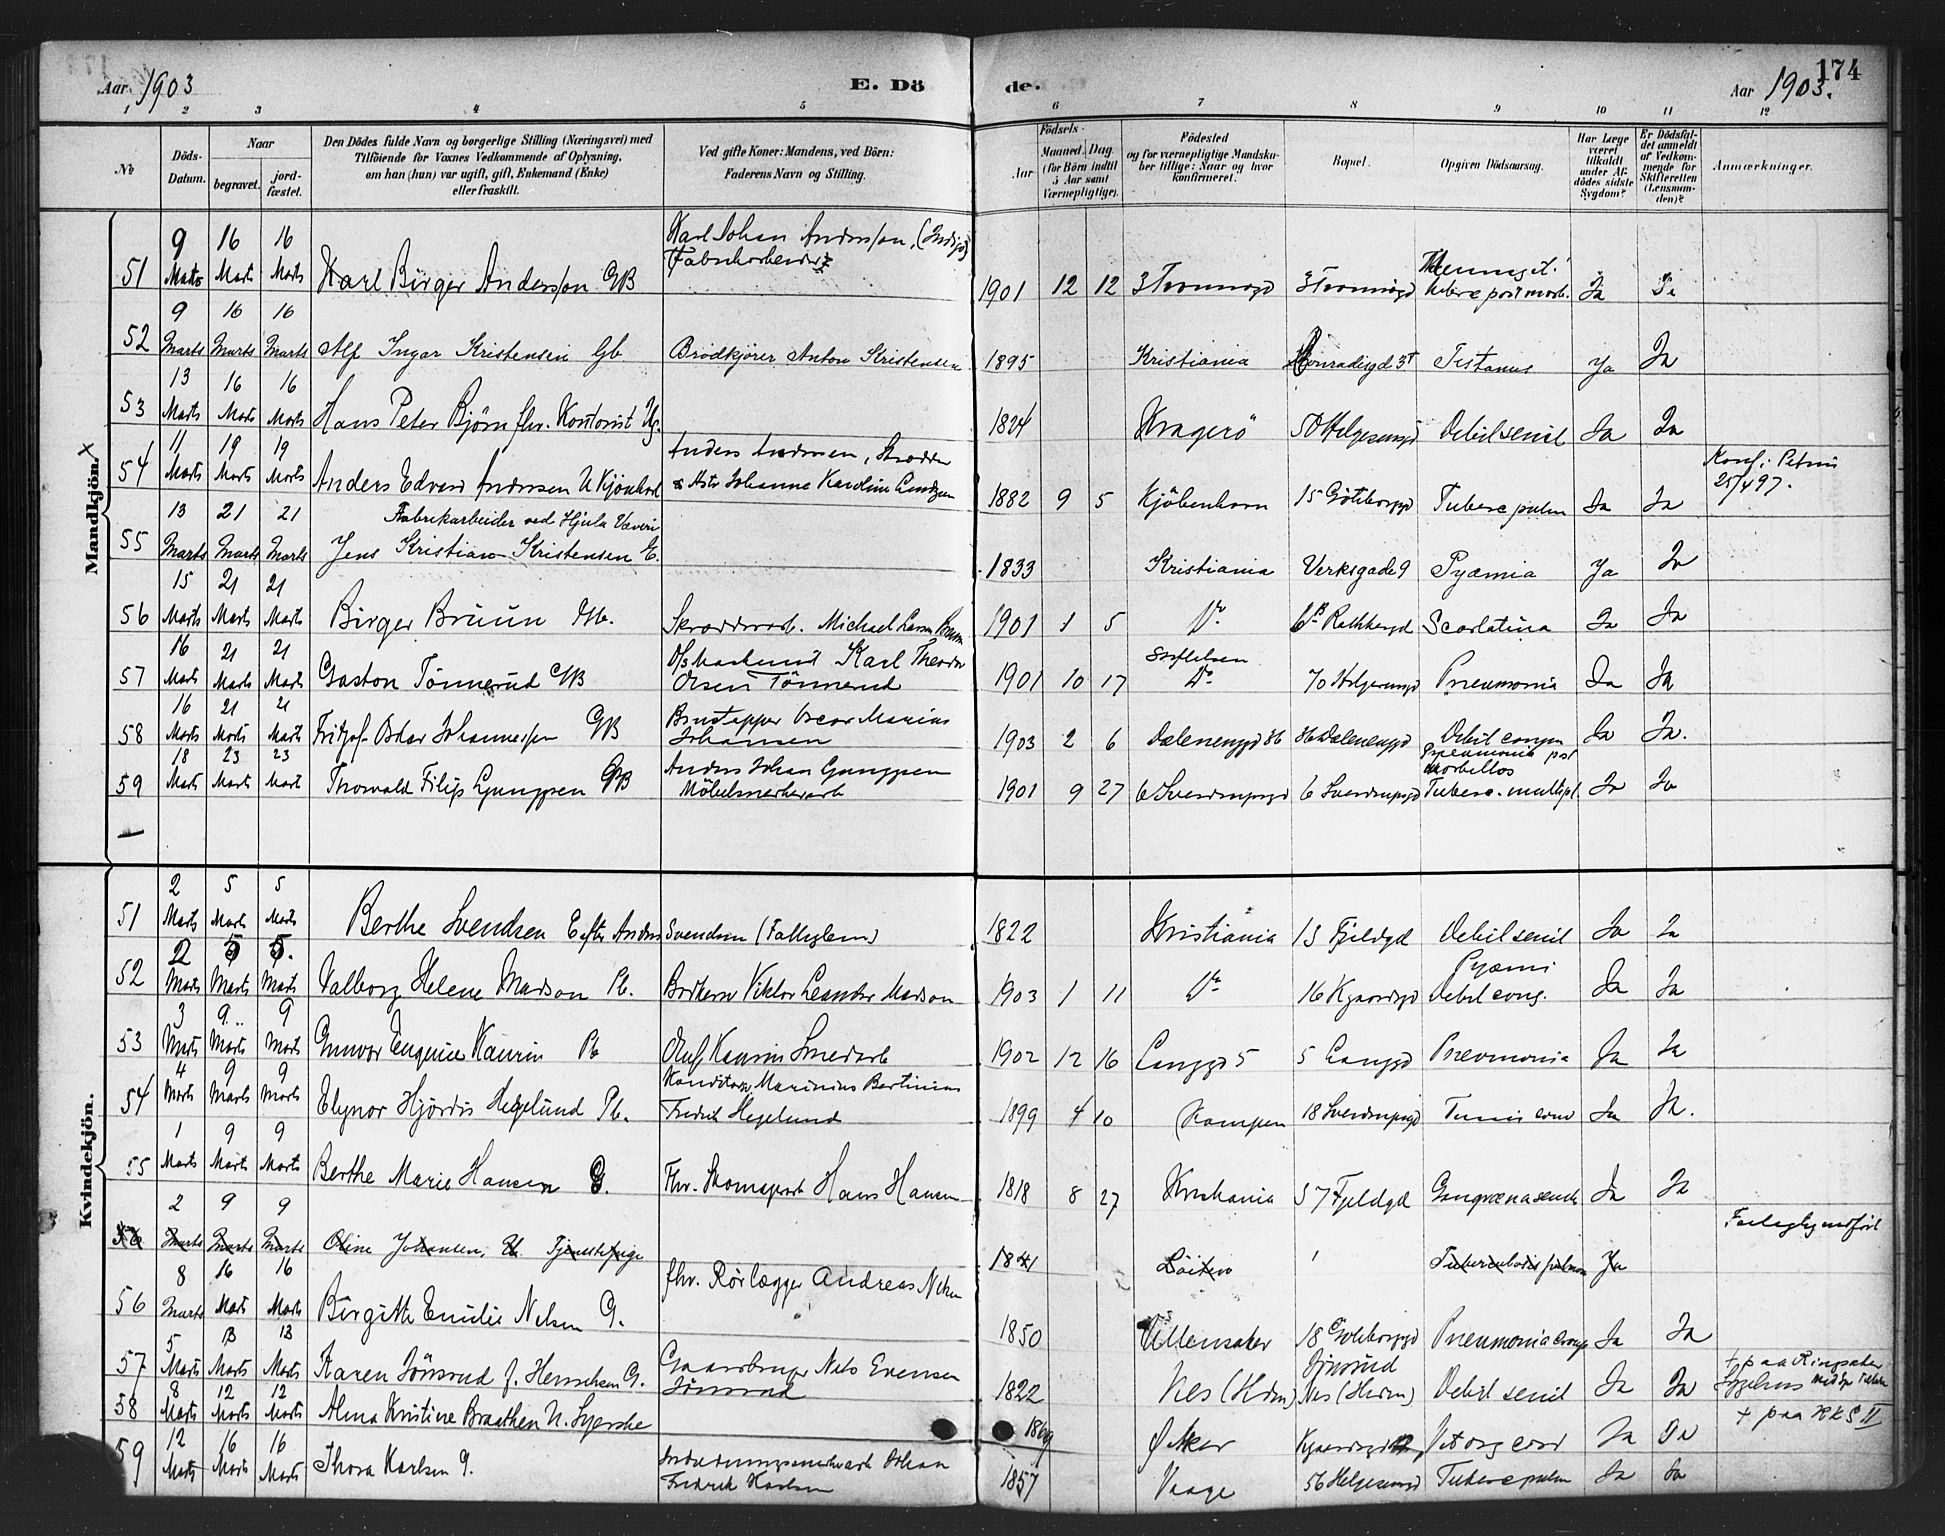 Aar 1903
E. Dö
de.
Aar 1903.
174
1 2 3 4 5 6 7 8 9 10 11 12
No
Döds-Datum.
Naar
begravet.
jord-fæstet.
Den Dödes fulde Navn og borgerlige Stilling (Næringsvei) med
Tilföiende for Voxnes Vedkommende af Oplysning,
om han (hun) var ugift, gift, Enkemand (Enke)
eller fraskilt.
Ved gifte Koner: Mandens, ved Börn:
Faderens Navn og Stilling.
Födsels-
Aar
Maaned. Dag
(for Börn indtil
5 Aar samt
Værnepligtige).
Födested
og for værnepligtige Mandska-
ber tillige: Naar og hvor
konfirmeret.
Bopæl.
Opgiven Dödsaarsag.
Har Læge
været
tilkaldt
under Af-
dödes sidste
Sygdom?
Er Dödsfal-
det anmeldt
af Vedkom-
mende for
Skifteretten
(Lensman-
den)?
Anmærkninger.
Mandkjön.
51 9 Marts 16 Marts 16 Marts Karl Birger Andersson GB Karl Johan Andersson, Fabrikarbeider 1901 12 12 Ja Ja
52 9 Marts 16 Marts 16 Marts Alf Ingar Kristensen Gb Brödkjörer Anton Kristensen 1895 Kristiania Tetanus Ja Ja
53 13 Marts 16 Marts 16 Marts Hans Peter Björn fhv. Kontorist Ug. 1824 Kragerö Debil senil Ja Ja
54 11 Marts 19 Marts 19 Marts Anders Edvard Andersen Anders Andersen, Johanne Karoline 1882 9 5 Kjöbenhavn 15 Göteborggd Tuberc pulm Ja Ja Konf. Petrus 25/4 97.
55 13 Marts 21 Marts 21 Marts Fabrikarbeider ved Hjula Væveri
Jens Kristian Kristensen E. 1833 Kristiania Verksgade 9 Pyæmia Ja Ja
56 15 Marts 21 Marts 21 Marts Birger Bruun Skrædderarb. Michael Larsen Bruun 1901 1 5 Do Rathkesgd Scarlatina Ja Ja
57 16 Marts 21 Marts 21 Marts Gaston Tönnerud GB Karl Theodor
Olsen Tönnerud 1901 10 17 Stiftelsen
Do 70 Helgesensgd Pneumonia Ja Ja
58 16 Marts 21 Marts 21 Marts Fritjof Oskar Johannessen GB Oscar Marius
Johansen 1903 2 6 Dælenenggd 36 36 Dælenenggd Debil congen Ja Ja.
59 18 Marts 23 Marts 23 Marts Thorvald Filip Ljunggren GB Anders Johan Ljunggren
Möbelsnekkerarb 1901 9 27 6 Sverdrupsgd 6 Sverdrupsgd Pneumonia post
morbillos
Tuberc. multipl. Ja Ja
Kvindekjön.
51 2 Marts 5 Marts 5 Marts Berthe Svendsen E efter Anders Svendsen (Fattiglem) 1822 Kristiania 13 Fjeldgd Debil senil Ja Ja
52 2 Marts 5 Marts 5. Marts Valborg Helene Madson Pb. Viktor Leander Madson 1903 1 11 Do 16 Pyæmi
Debil cong. Ja Ja
53 3 Marts 9 Marts 9 Marts Gunvor Eugenie Kaurin Pb Oluf Kaurin Smedarb 1902 12 16 Langgd 5 5 Langgd Pneumonia Ja Ja
54 4 Marts 9 Marts 9 Marts Elynor Hjördis Hegelund Pb. Konditor Marinius Bertinius
Fredrik Hegelund 1899 4 10 Kampen 18 Sverdrupsgd Ja Ja.
55 1 Marts 9 Marts 9 Marts Berthe Marie Hansen G. Fhv. Skomagerarb Hans Hansen 1818 8 27 Kristiania 57 Fjeldgd Gangræna senilis Ja Ja
56 2 Marts 9 Marts 9 Marts Oline Johansen, U. Tjenestepige 1841 Löiten Tuberculosis pulmon Ja
56 8 Marts 16 Marts 16 Marts Birgitte Emilie Nelsen G. fhv. Rörlægger Andreas Nelsen 1850 Ullensaker 18 Göteborggd Pneumonia Ja Ja
57 5 Marts 13 Marts 13 Marts Karen Jönsrud G. Gaardbruger Nils Evensen
Jönsrud 1822 Nes (Hedm) Jönsrud
Nes (Hedm) Debil senil Ja Ja + paa Ringsaker
58 8 Marts 12 Marts 12 Marts Alma Kristine Braathen U. Syerske 1869 Ø Aker Vit org cord Ja Ja + paa RKS II
59 12 Marts 16 Marts 16 Marts Thora Karlsen G. Johan
Fredrik Karlsen 1857 Vaage 56 Helgesensgd Tuberc pulm Ja Ja